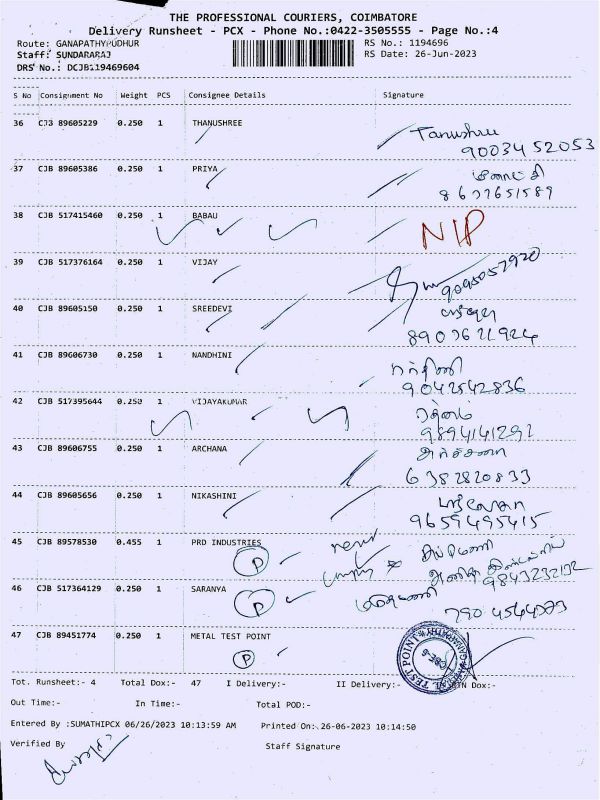 THE PROFESSIONAL COURIERS, COIMBATORE
Delivery Runsheet - PCX - Phone No.:0422-3505555 - Page No.:4
Route: GANAPATHYPUDHUR RS No.: 1194696
Staff: SUNDARARAJ RS Date: 26-Jun-2023
DRS No.: DCJB119469604
S No Consignment No Weight PCS Consignee Details Signature
36 CJB 89605229 0.250 1 THANUSHREE Tanushree
9003452053
37 CJB 89605386 0.250 1 PRIYA
8637651589
38 CJB 517415460 0.250 1 BABAU NIP
39 CJB 517376164 0.250 1 VIJAY
9095057920
40 CJB 89605150 0.250 1 SREEDEVI
8903621924
41 CJB 89606730 0.250 1 NANDHINI நந்தினி
9042542836
42 CJB 517395644 0.250 1 VIJAYAKUMAR
9894141292
43 CJB 89606755 0.250 1 ARCHANA அர்ச்சனா
6382820833
44 CJB 89605656 0.250 1 NIKASHINI
9659495415
45 CJB 89578530 0.455 1 PRD INDUSTRIES
P 9843232132
46 CJB 517364129 0.250 1 SARANYA
P
47 CJB 89451774 0.250 1 METAL TEST POINT
P
Tot. Runsheet:- 4 Total Dox:- 47 I Delivery:- II Delivery:- Dox:-
Out Time:- In Time:- Total POD:-
Entered By :SUMATHIPCX 06/26/2023 10:13:59 AM Printed On: 26-06-2023 10:14:50
Verified By Staff Signature